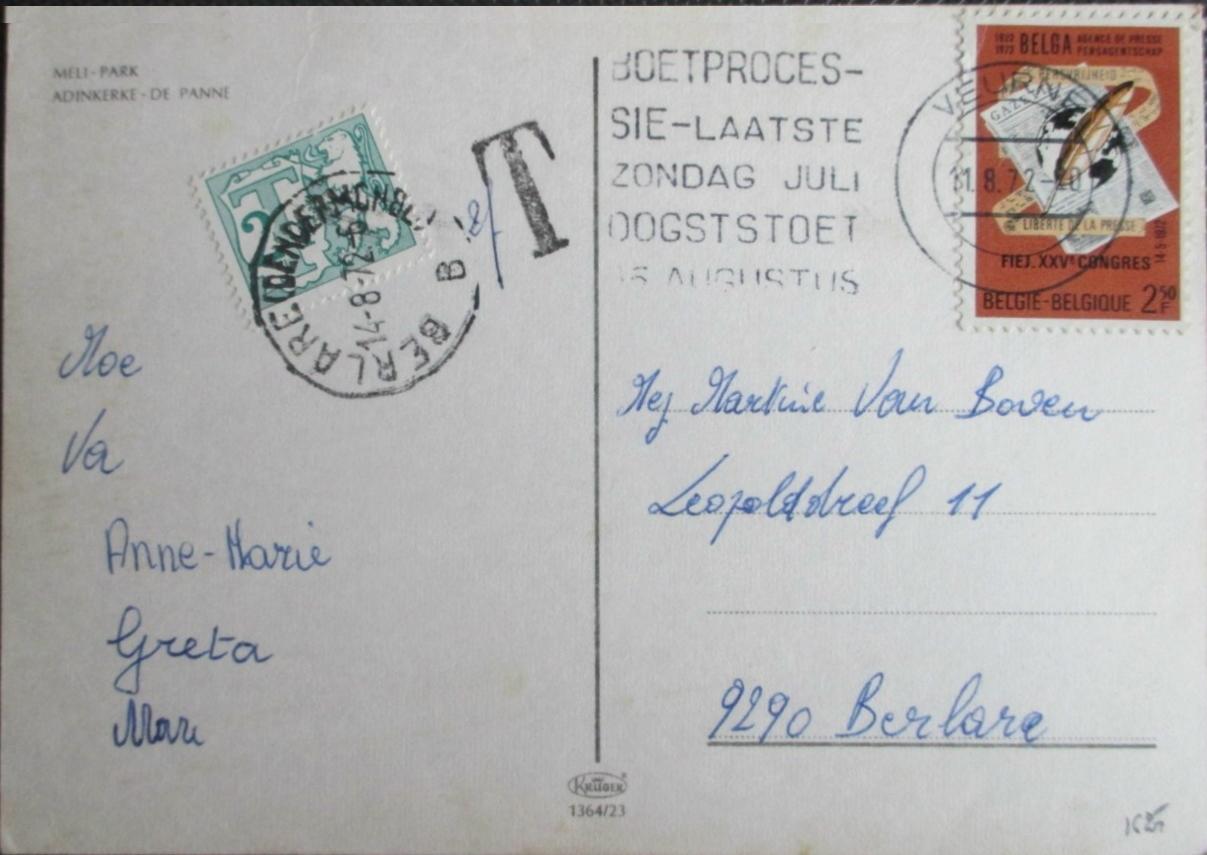 MELI-PARK
ADINKERKE-DE PANNE
T
2
T
BERLARE (DENDERMONDE)
14-8-72
B
BOETPROCES-
SIE-LAATSTE
ZONDAG JULI
OOGSTSTOET
15 AUGUSTUS
VEURNE
11.8.72-20
1922
1972
BELGA
AGENCE DE PRESSE
PERSAGENTSCHAP
PERSVRIJHEID
LIBERTE DE LA PRESSE
FIEJ. XXVe CONGRES
BELGIE-BELGIQUE 2 50 F
Moe
Va
Anne-Marie
Greta
Marc
Mej Martine Van Boven
Leopolddreef 11
9290 Berlare
KRÜGER
1364/23